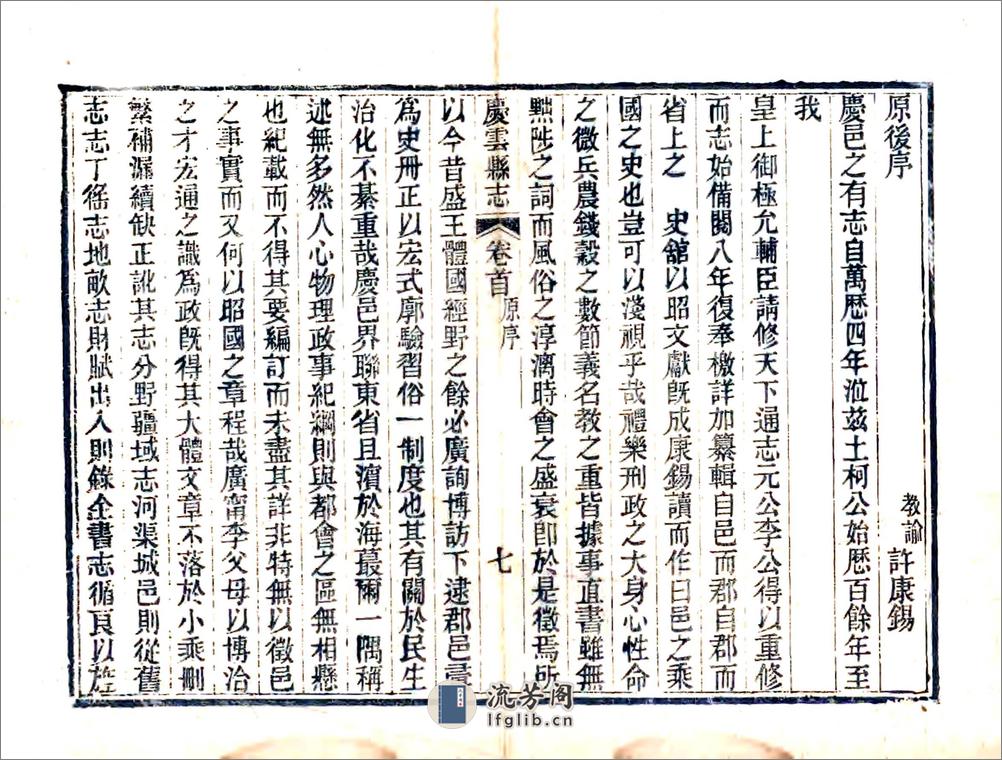 原後序
教諭 許康錫
慶邑之有志自萬厯四年涖茲土柯公始厯百餘年至
我
皇上御極允輔臣請修天下通志元公李公得以重修
而志始備閱八年復奉檄詳加纂輯自邑而郡自郡而
省上之 史舘以昭文獻既成康錫讀而作曰邑之乘
國之史也豈可以淺視乎哉禮樂刑政之大身心性命
之微兵農錢穀之數節義名教之重皆據事直書雖無
黜陟之詞而風俗之淳漓時會之盛衰卽於是徵焉所
慶雲縣志 卷首 原序 七
以今昔盛王體國經野之餘必廣詢博訪下逮郡邑彚
為史冊正以宏式廓驗習俗一制度也其有關於民生
治化不綦重哉慶邑界聯東省且濵於海蕞爾一隅稱
述無多然人心物理政事紀綱則與都會之區無相懸
也紀載而不得其要編訂而未盡其詳非特無以徵邑
之事實而又何以昭國之章程哉廣甯李父母以博洽
之才宏通之識為政旣得其大體文章不落於小乘刪
繁補漏續缺正訛其志分野疆域志河渠城邑則從舊
志志丁徭志地畝志財賦出入則錄全書志循良以旌
流芳阁
lfglib.cn